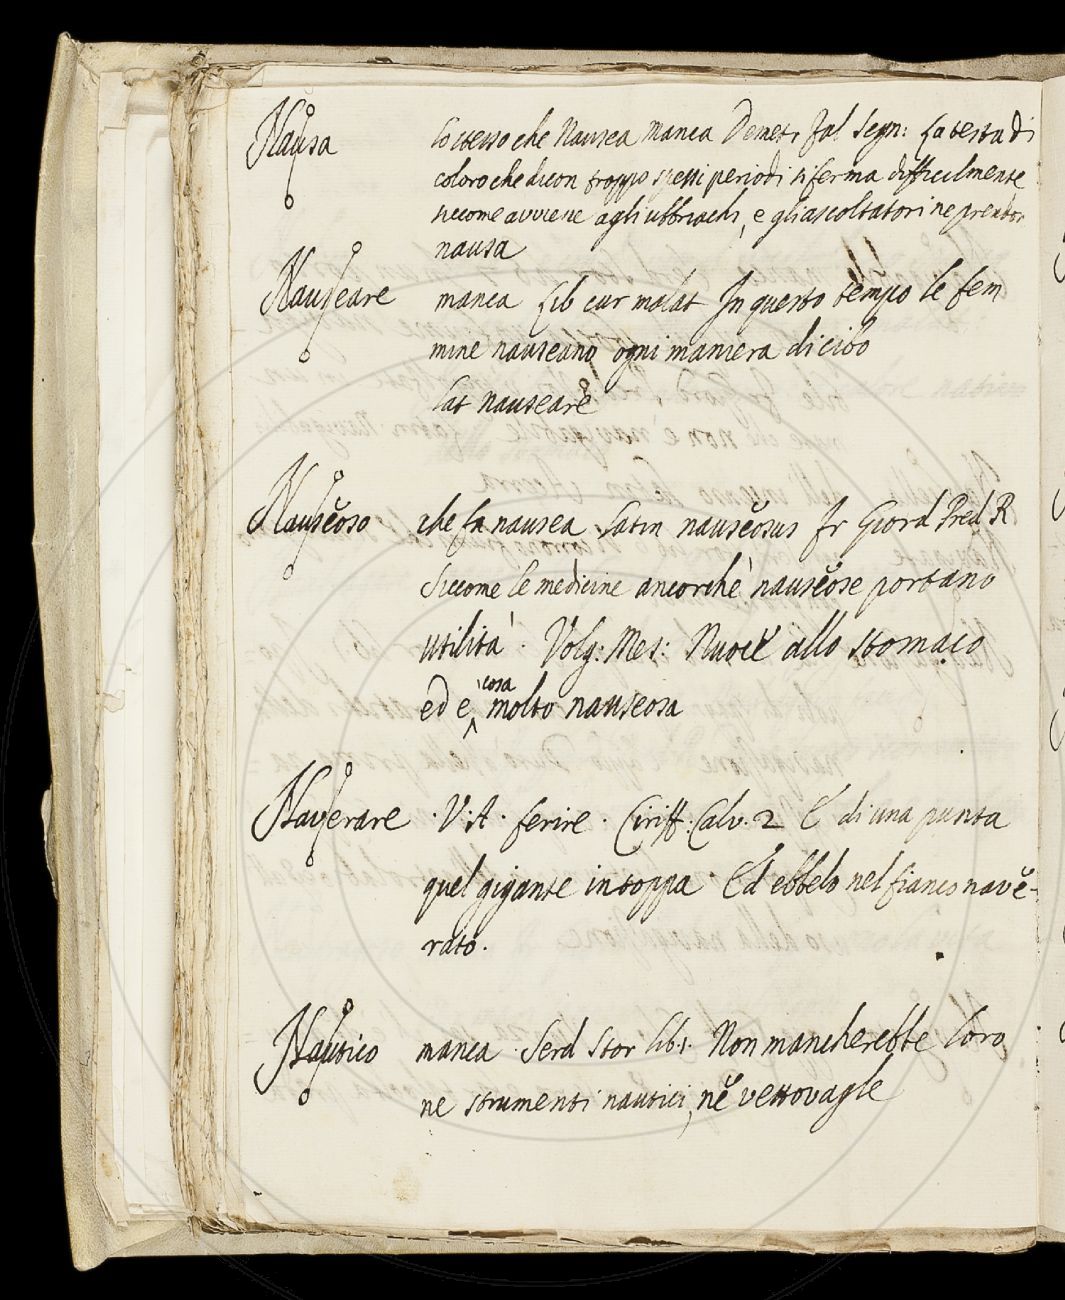 Nausa lo stesso che Nausea manca Demetr. Fal. Segn: La testa di
coloro che dicon troppo spessi periodi si ferma difficilmente
siccome avviene agli ubbriachi, e gli ascoltatori ne prendon
nausa
Nauseare manca Lib cur malat In questo tempo le fem
mine nauseano ogni maniera di cibo
Lat nauseare
Nauseoso che fa nausea Latin nauseosus Fr Giord Pred R
Siccome le medicine ancorchè nauseose portano
utilità. Volg: Mes: Nuoce allo stomaco
ed è cosa molto nauseosa
Naverare V: A. ferire. Ciriff. Calv. 2 E di una punta
quel gigante intoppa. Ed ebbelo nel fianco nave-
rato.
Nautico manca Serd Stor lib. 1. Non mancherebbe loro
ne strumenti nautici, nè vettovagle